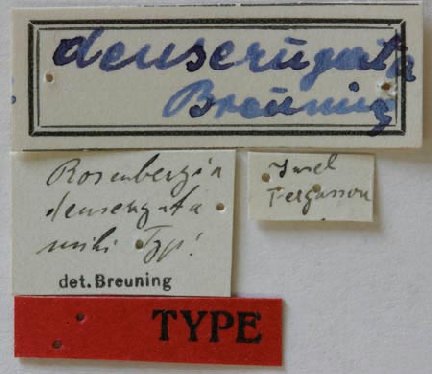 denserugata
Breuning
Rosenbergia
denserugata
mihi Typ!
det. Breuning
Insel
Fergusson
TYPE